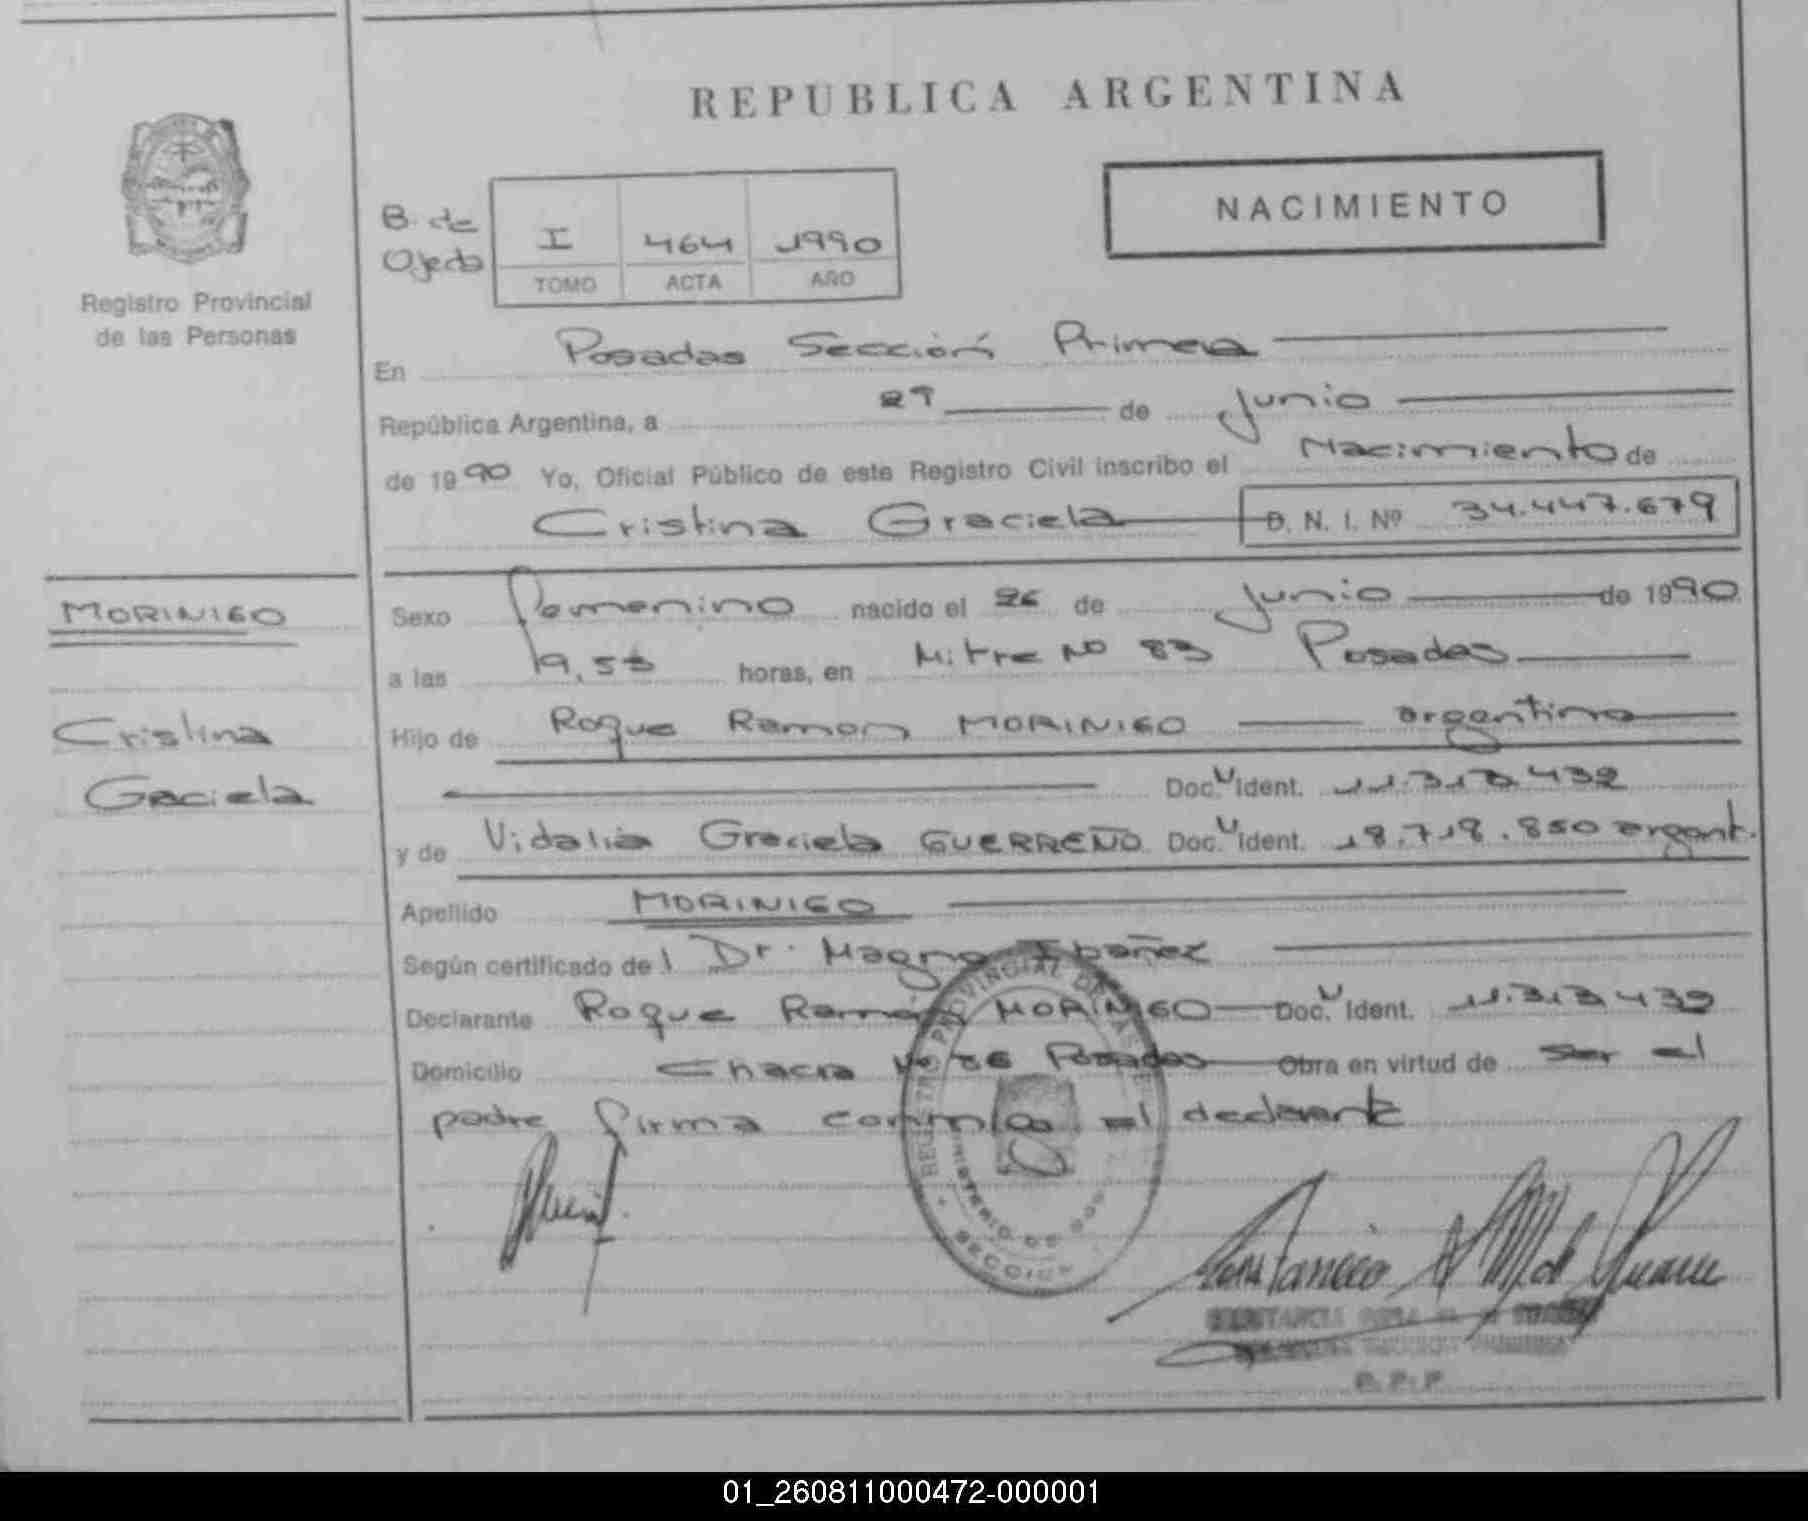 REPUBLICA ARGENTINA
NACIMIENTO
B. de
Ojeda
I 464 1990
TOMO ACTA AÑO
Registro Provincial
de las Personas
En Posadas Sección Primera
República Argentina, a 29 de Junio
de 1990 Yo, Oficial Público de este Registro Civil inscribo el Nacimiento de
Cristina Graciela D. N. I. Nº 34.447.679
MORINIGO
Cristina
Graciela
Sexo femenino nacido el 26 de Junio de 1990
a las 19,53 horas, en Mitre Nº 83 Posadas
Hijo de Roque Ramon MORINIGO argentino
Doc. U Ident. 11.313.432
y de Vidalia Graciela GUERREÑO Doc. U Ident. 18.718.850 argent.
Apellido MORINIGO
Según certificado del Dr. Magno Ibañez
Declarante Roque Ramón MORINIGO Doc. U Ident. 11.313.432
Domicilio Chacra Nº Posadas Obra en virtud de ser el
padre firma conmigo el declarante
REGISTRO PROVINCIAL DE LAS
MINISTERIO DE GOB
SECCION
R. P. P.
01_260811000472-000001